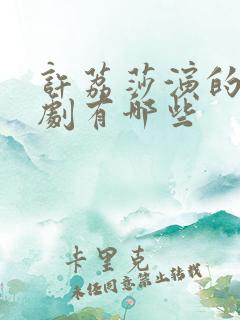 許荔莎演的
劇有哪些
卡里克
未经同意禁止转载